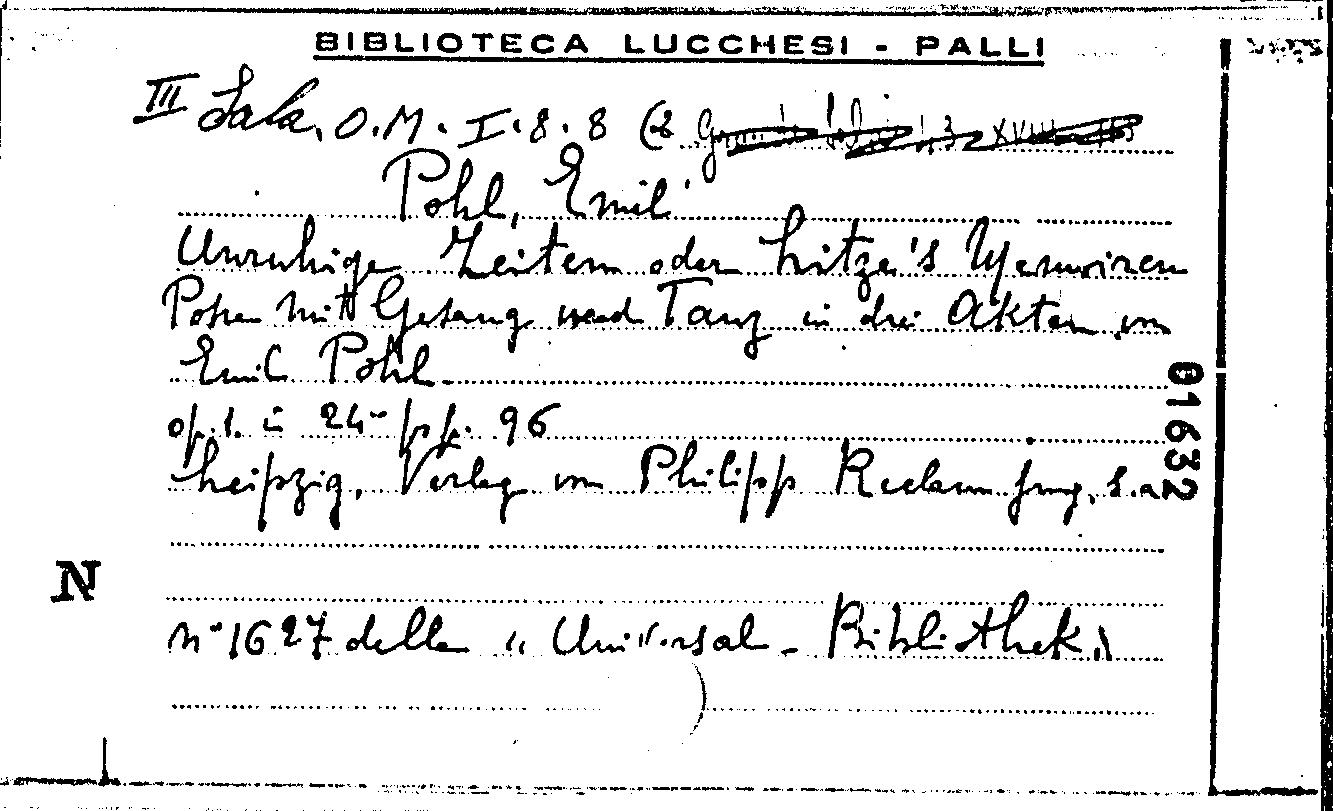 BIBLIOTECA LUCCHESI - PALLI
III Sala. O.M. I. 8. 8 (2
Pohl, Emil
Unruhige Zeiten oder Lietze's Memoiren
Posse mit Gesang und Tanz in drei Akten von
Emil Pohl.
op. 1. in 24° pp. 96
Leipzig, Verlag von Philipp Reclam jung, s.a
01632
N
n° 1627 della "Universal - Bibliothek"